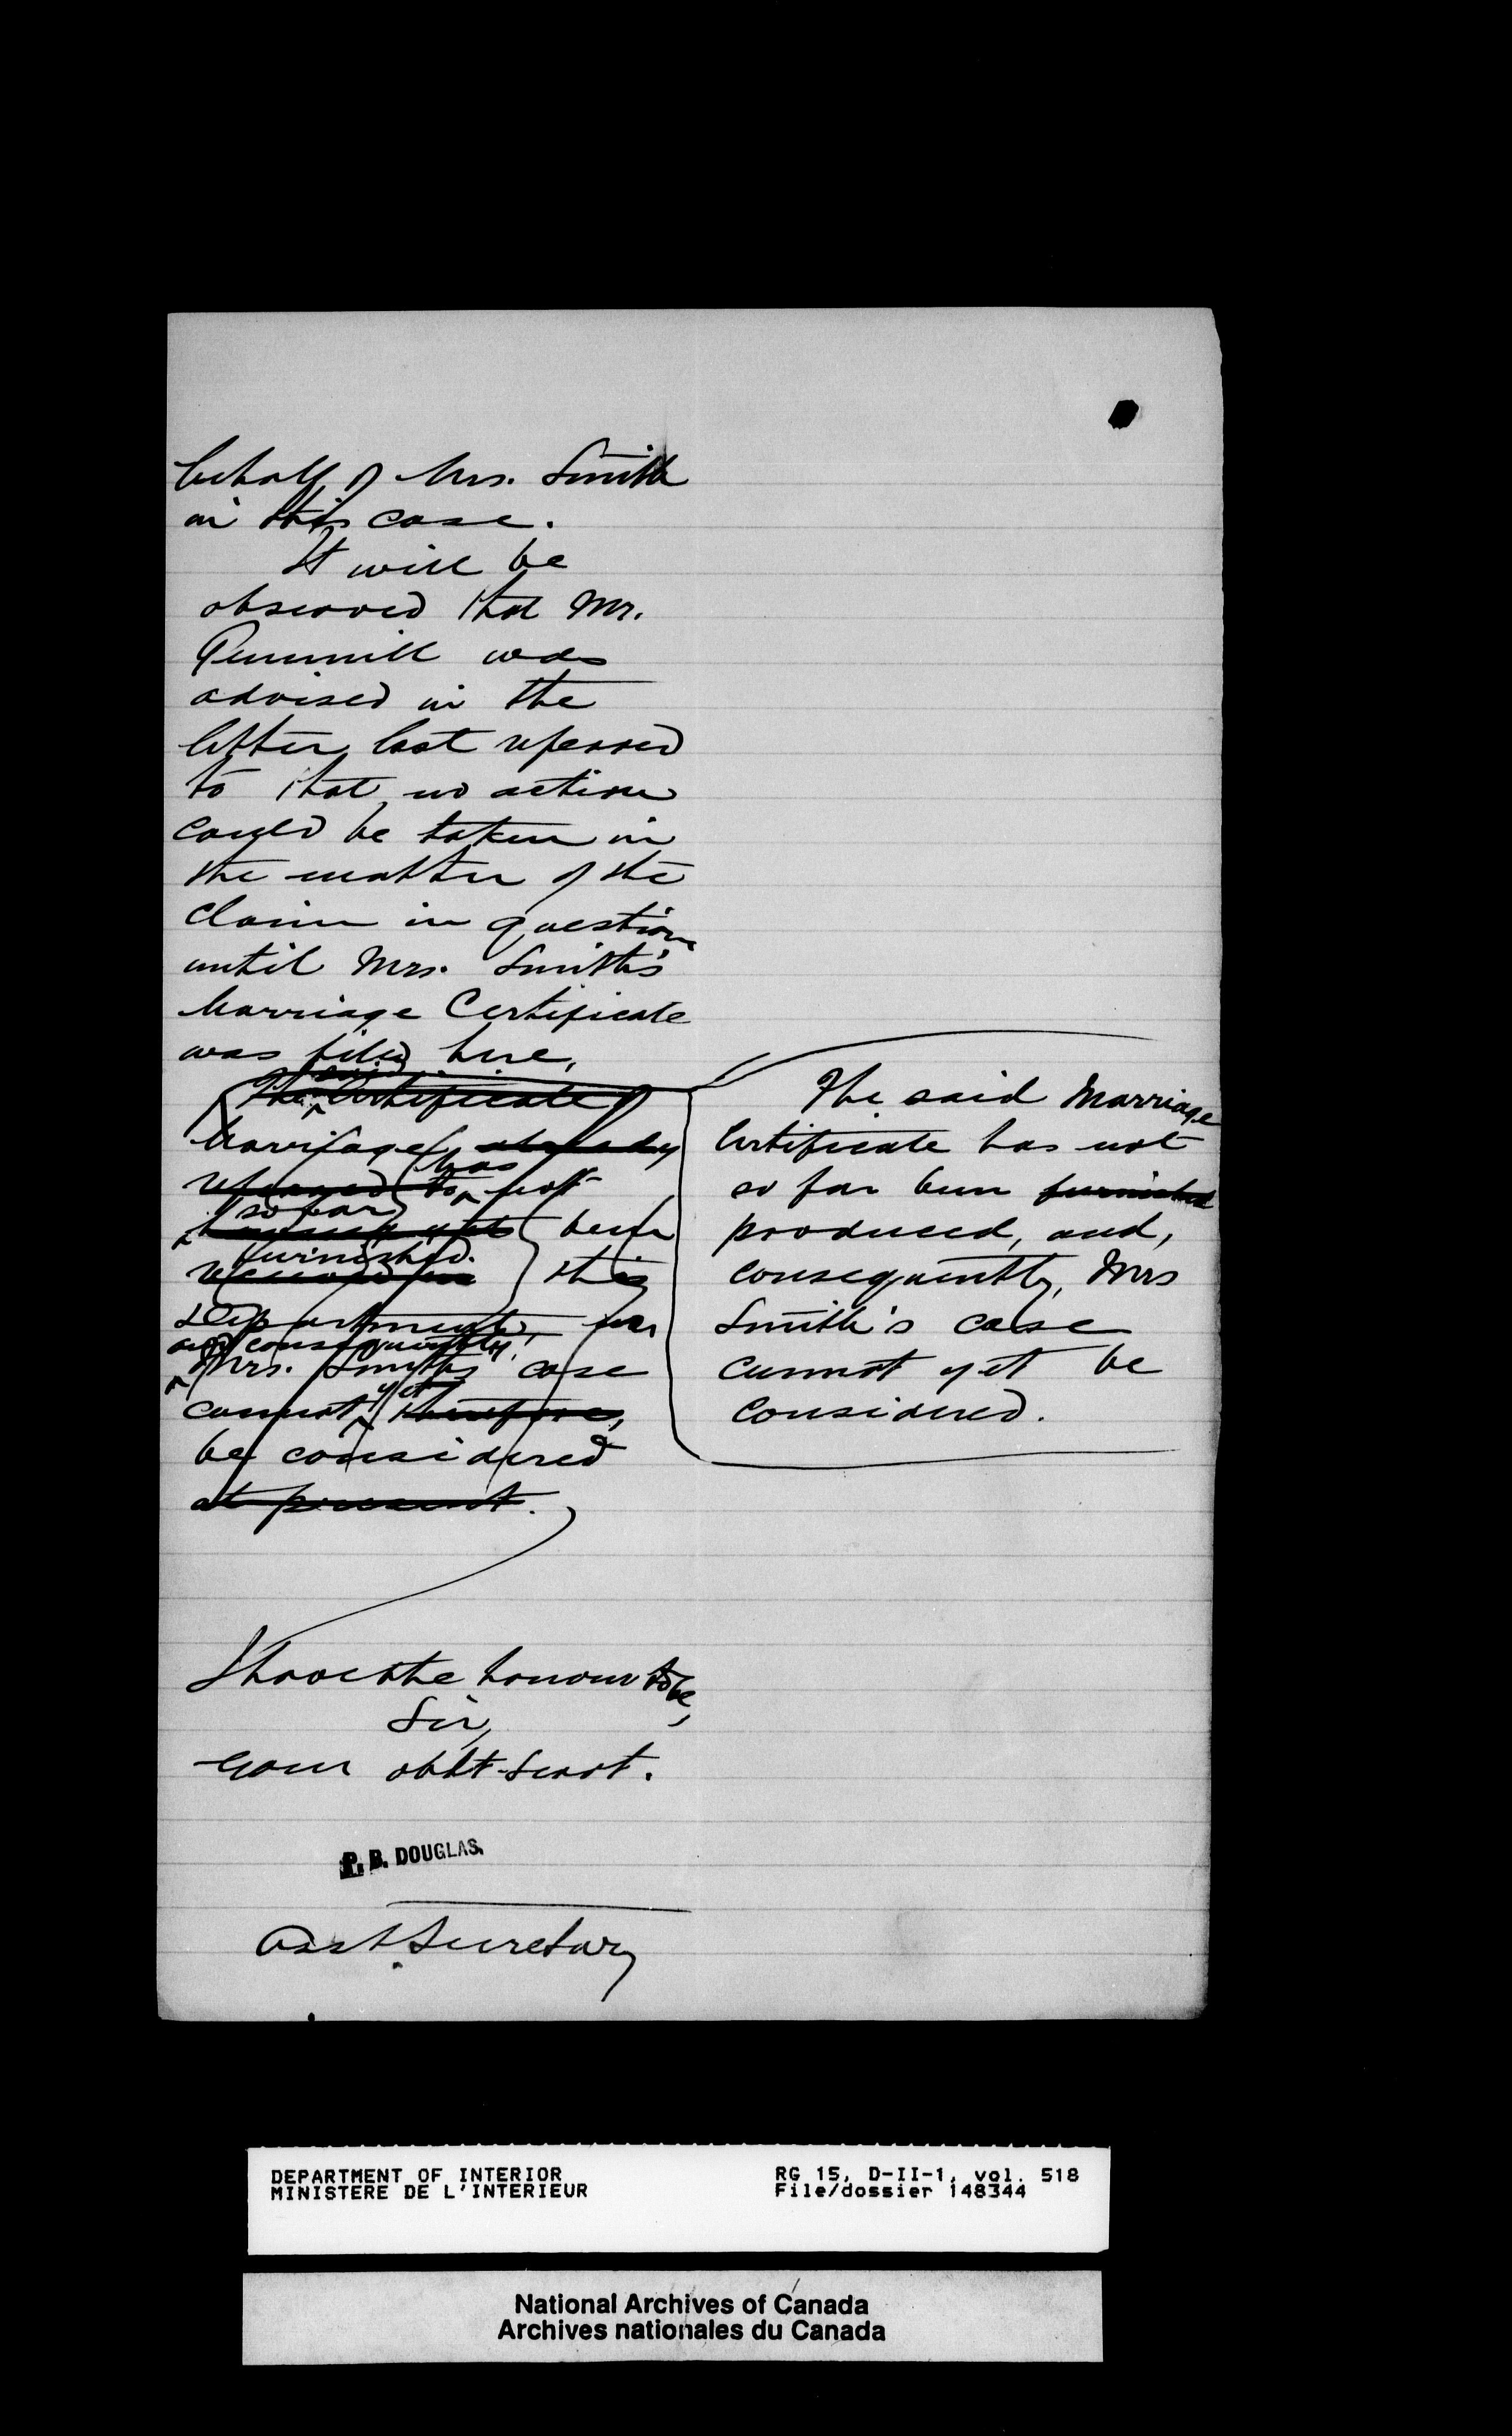 behalf of Mrs. Smith
in this case.
It will be
observed that Mr.
Gemmill was
advised in the
letter last referred
to that no action
could be taken in
the matter of the
claim in question
until Mrs. Smith's
Marriage Certificate
was filed here.
said
The Certificate of
Marriage already
has
referred to not
so far
having yet been
furnished.
received in this
Department,
and consequently,
Mrs. Smith's case
yet
cannot therefore,
be considered
at present.
The said Marriage
Certificate has not
so far been furnished
produced, and,
consequently, Mrs
Smith's case
cannot yet be
considered.
I have the honour to be,
Sir,
Your obt Servt.
P. B. DOUGLAS.
Asst Secretary
DEPARTMENT OF INTERIOR
MINISTERE DE L'INTERIEUR
RG 15, D-II-1, vol. 518
File/dossier 148344
National Archives of Canada
Archives nationales du Canada